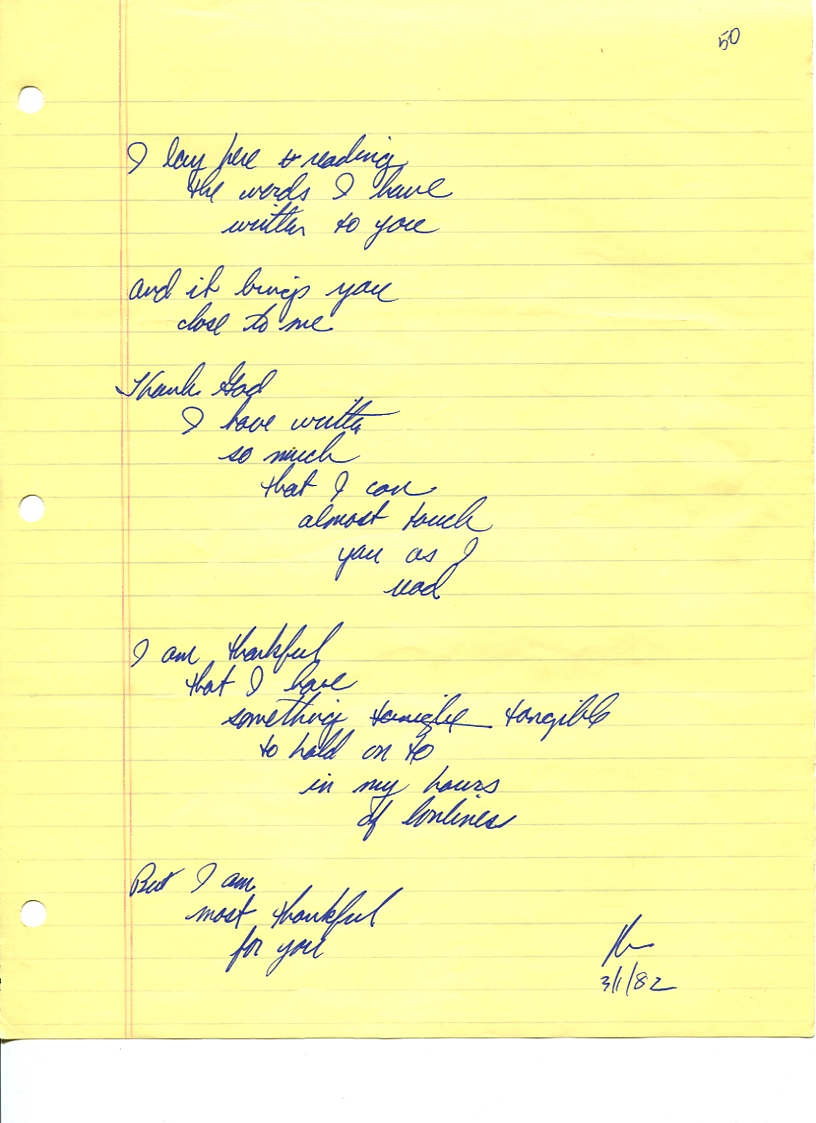 50
I lay here & reading
the words I have
written to you
and it brings you
close to me
Thank God
I have written
so much
that I can
almost touch
you as I
read
I am thankful
that I have
something tangible
to hold on to
in my hours
of lonlines
But I am
most thankful
for you
3/1/82